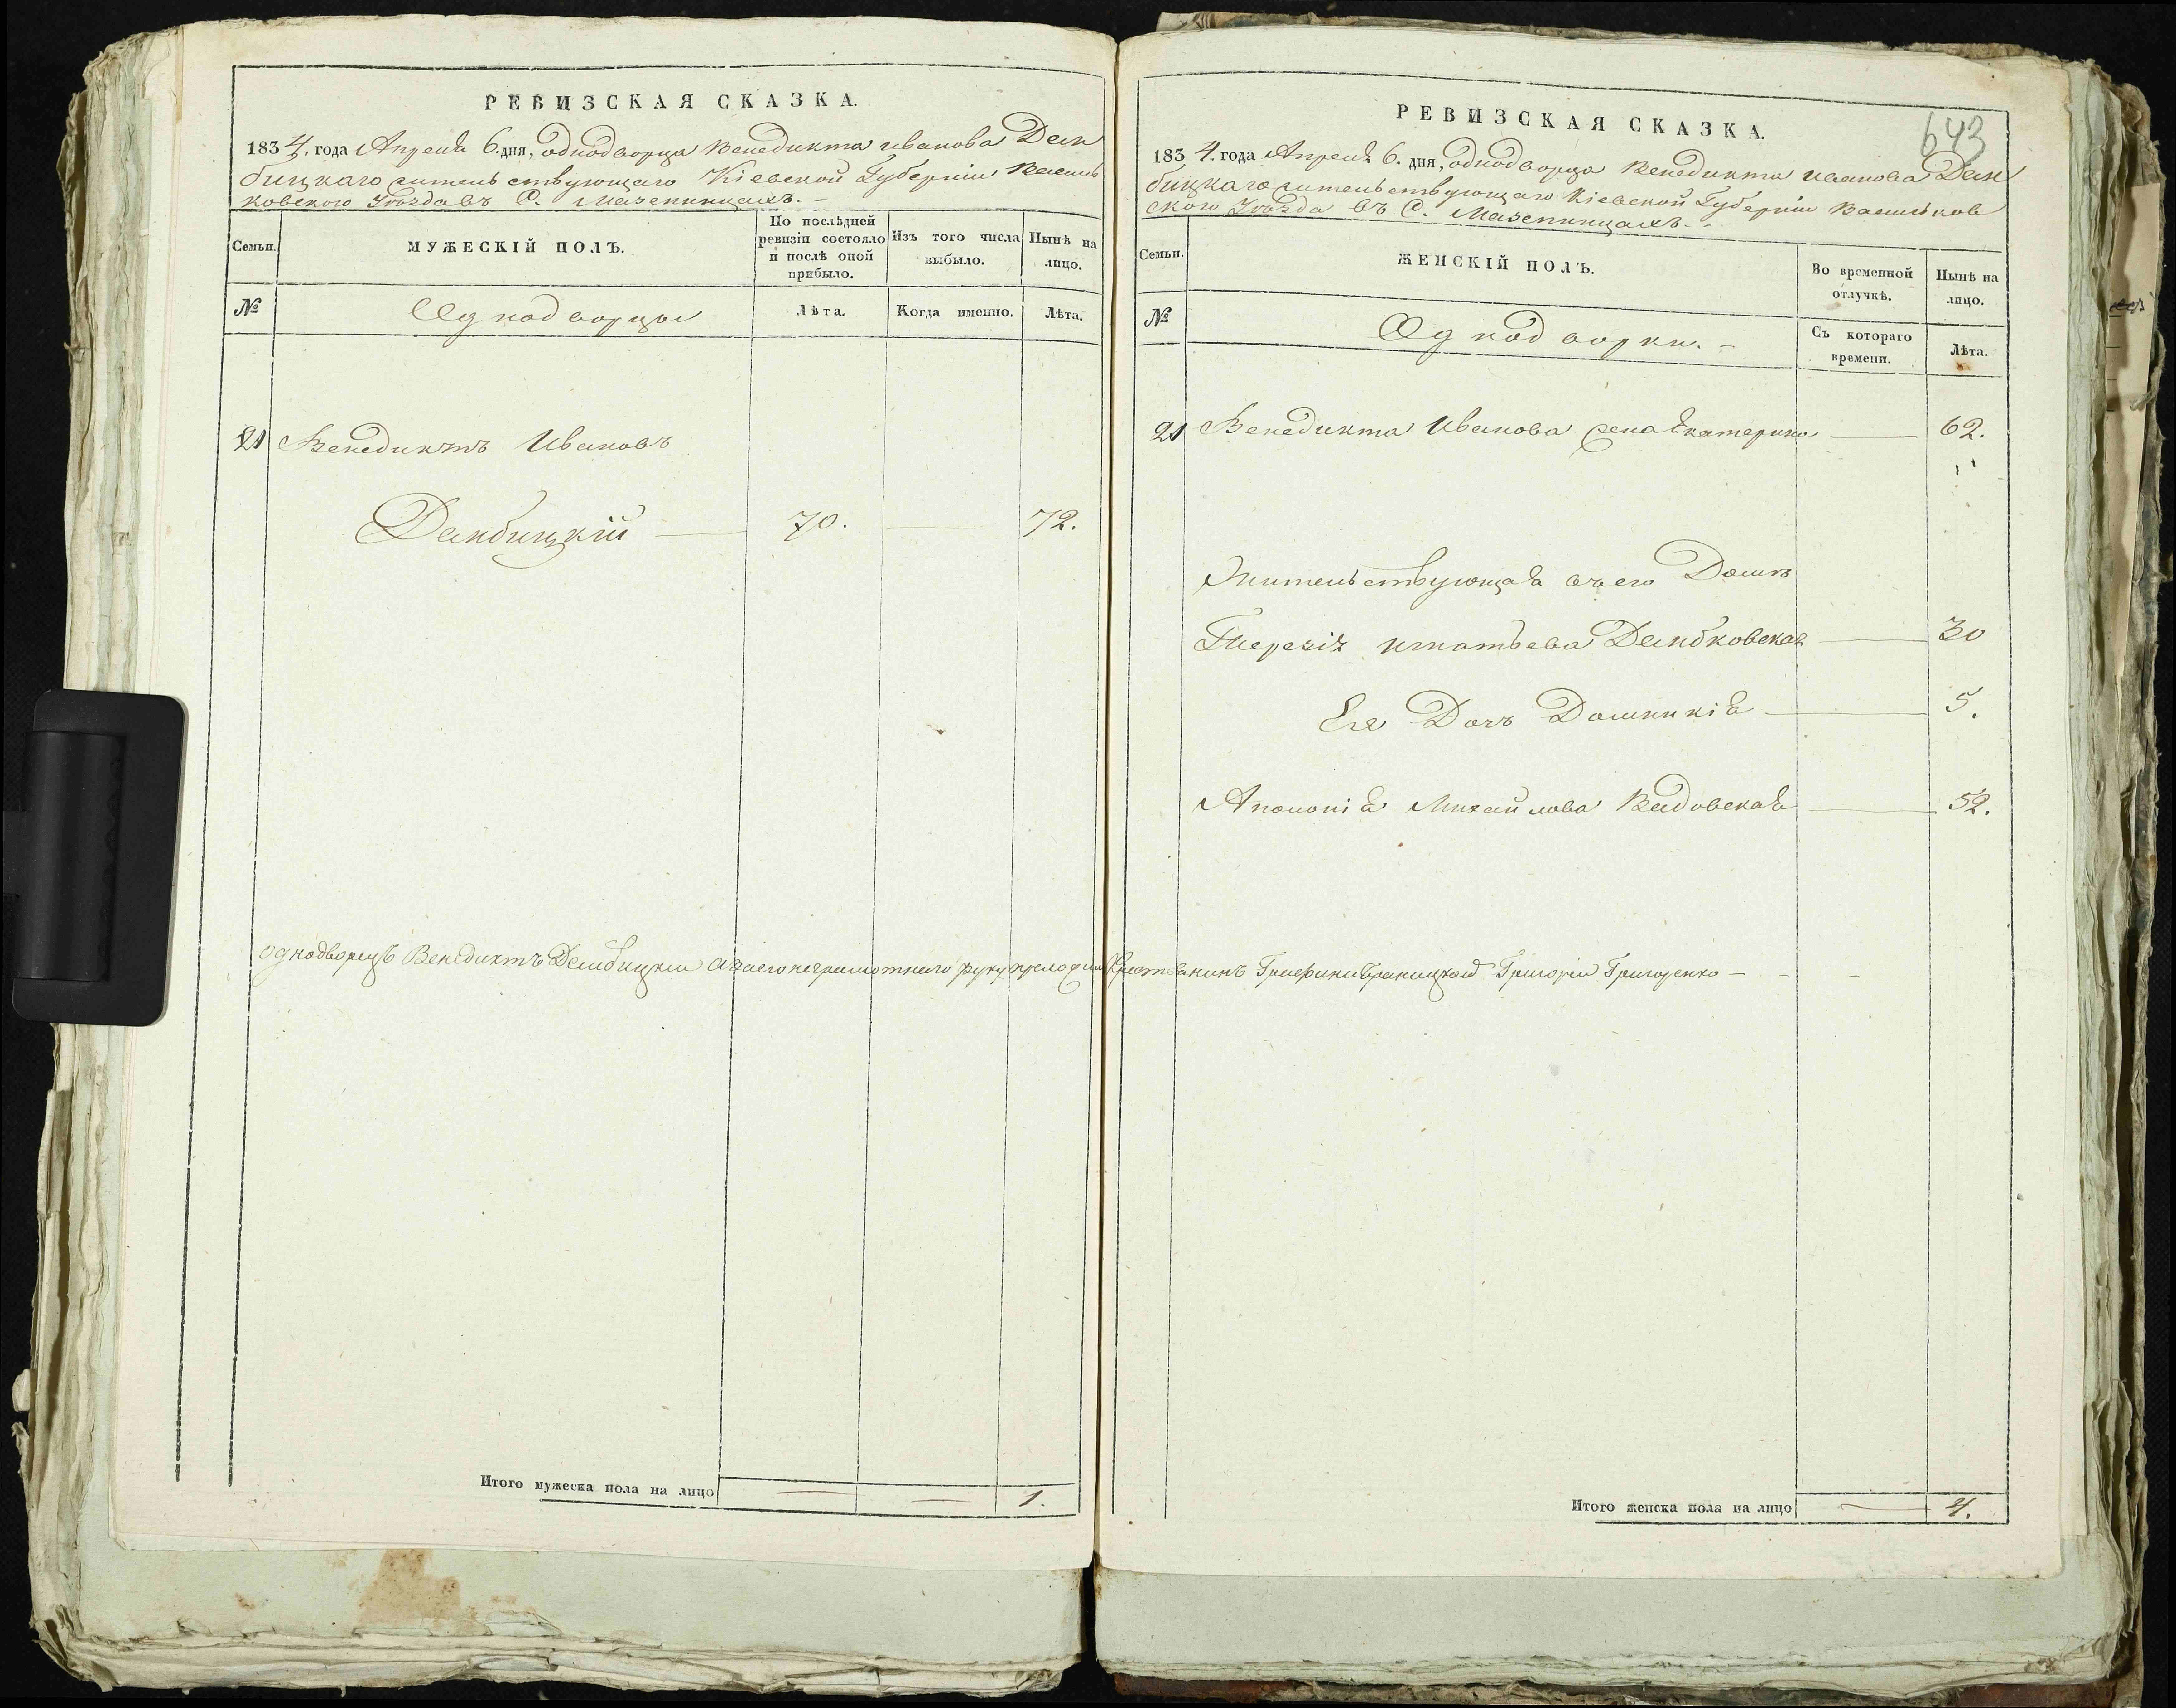 РЕВИЗСКАЯ СКАЗКА.
1834. года Апреля 6. дня, однодворца Венедикта Иванова Дем
бицкаго жительствующаго Кіевской Губерніи Василь
ковского Уѣзда въ С. Мазепинцахъ. -
Семьи.
МУЖЕСКІЙ ПОЛЪ.
По послѣдней
ревизіи состояло
и послѣ оной
прибыло.
Изъ того числа
выбыло.
Нынѣ на
лицо.
№
Однодворцы
Лѣта.
Когда именно.
Лѣта.
21 Венедиктъ Ивановъ
Дембицкій — 70. — 72.
однодворецъ Венедиктъ Дембицкии а за его неграмотнаго руку приложил Крестьянинъ Графини Браницкой Григорїи Григоренко - - -
Итого мужеска пола на лицо — — 1.
643
РЕВИЗСКАЯ СКАЗКА.
1834. года Апреля 6. дня, однодворца Венедикта Иванова Дем
бицкаго жительствующаго Кіевской Губерніи Васильков
ского Уѣзда въ С. Мазепинцахъ. -
Семьи.
ЖЕНСКІЙ ПОЛЪ.
Во временной
отлучкѣ.
Нынѣ на
лицо.
№
Однодворки. -
Съ котораго
времени.
Лѣта.
21 Венедикта Иванова жена Екатерина — 62.
Жительствующая въ его Домѣ
Терезія Игнатьева Дембковская — 30
Ея Дочь Доминикія — 5.
Аполонія Михайлова Видовская — 52.
Итого женска пола на лицо — 4.